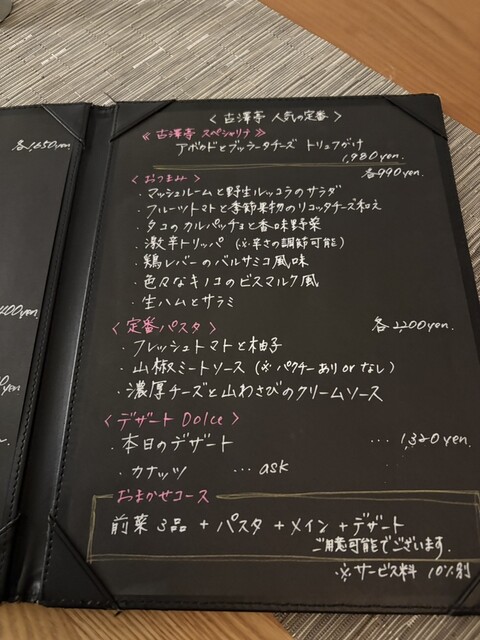 各1,650yen.
<古澤亭 人気の定番>
≪古澤亭 スペシャリテ≫
アボカドとブッラータチーズ トリュフがけ
1,980yen.
<おつまみ> 各990yen.
・マッシュルームと野生ルッコラのサラダ
・フルーツトマトと季節果物のリコッタチーズ和え
・タコのカルパッチョと香味野菜
・激辛トリッパ (※辛さの調節可能)
・鶏レバーのバルサミコ風味
・色々なキノコのビスマルク風
・生ハムとサラミ
<定番パスタ> 各2,200yen.
・フレッシュトマトと柚子
・山椒ミートソース (※パクチーあり or なし)
・濃厚チーズと山わさびのクリームソース
<デザート Dolce>
・本日のデザート ... 1,320yen.
・カナッツ ... ask
おまかせコース
前菜3品 + パスタ + メイン + デザート
ご用意可能でございます.
※サービス料 10%別